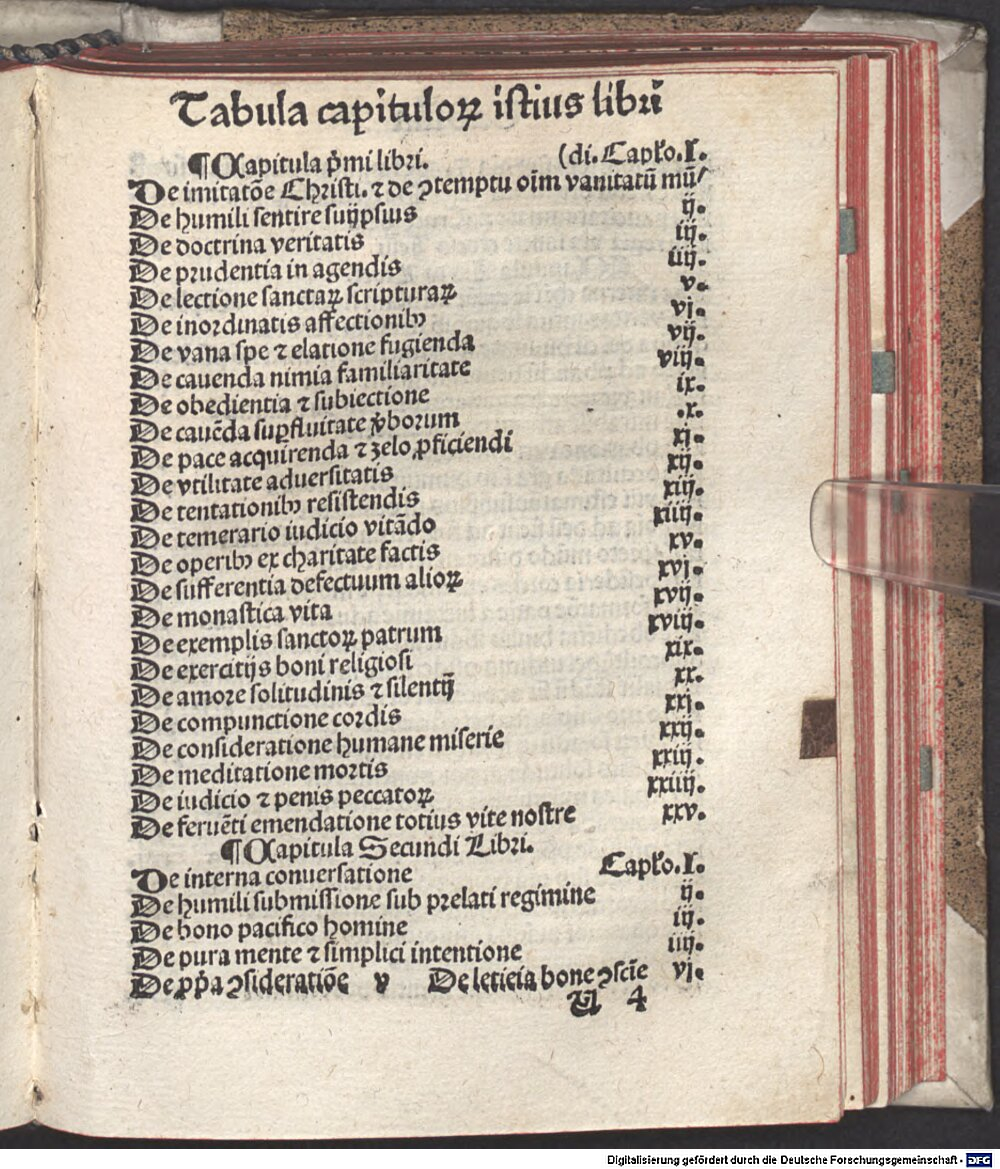 Tabula capituloꝝ iſtius libri
¶Capitula pͥmi libri. (di. Capło.I.
De imitatōe Chriſti. ⁊ de ↄtemptu oīm vanitatū mū⸗
De humili ſentire ſuijpſius ij.
De doctrina veritatis iij.
De prudentia in agendis iiij.
De lectione ſanctaꝝ ſcripturaꝝ v.
De inordinatis affectionibꝫ vj.
De vana ſpe ⁊ elatione fugienda vij.
De cauenda nimia familiaritate viij.
De obedientia ⁊ ſubiectione ix.
De cauēda ſuꝑfluitate ꝟborum .x.
De pace acquirenda ⁊ zelo ꝓficiendi xj.
De vtilitate aduerſitatis xij.
De tentationibꝫ reſiſtendis xiij.
De temerario iudicio vitādo xiiij.
De operibꝫ ex charitate factis xv.
De ſufferentia defectuum alioꝝ xvj.
De monaſtica vita xvij.
De exemplis ſanctoꝝ patrum xviij.
De exercitijs boni religioſi xix.
De amore ſolitudinis ⁊ ſilentij xx.
De compunctione cordis xxj.
De conſideratione humane miſerie xxij.
De meditatione mortis xxiij.
De iudicio ⁊ penis peccatoꝝ xxiiij.
De feruēti emendatione totius vite noſtre xxv.
¶Capitula Secundi Libri.
De interna conuerſatione Capło.I.
De humili ſubmiſſione ſub prelati regimine ij.
De bono pacifico homine iij.
De pura mente ⁊ ſimplici intentione iiij.
De ꝓpͥa ↄſideratiōe v De leticia bone ↄſcīe vj.
4
Digitalisierung gefördert durch die Deutsche Forschungsgemeinschaft - DFG